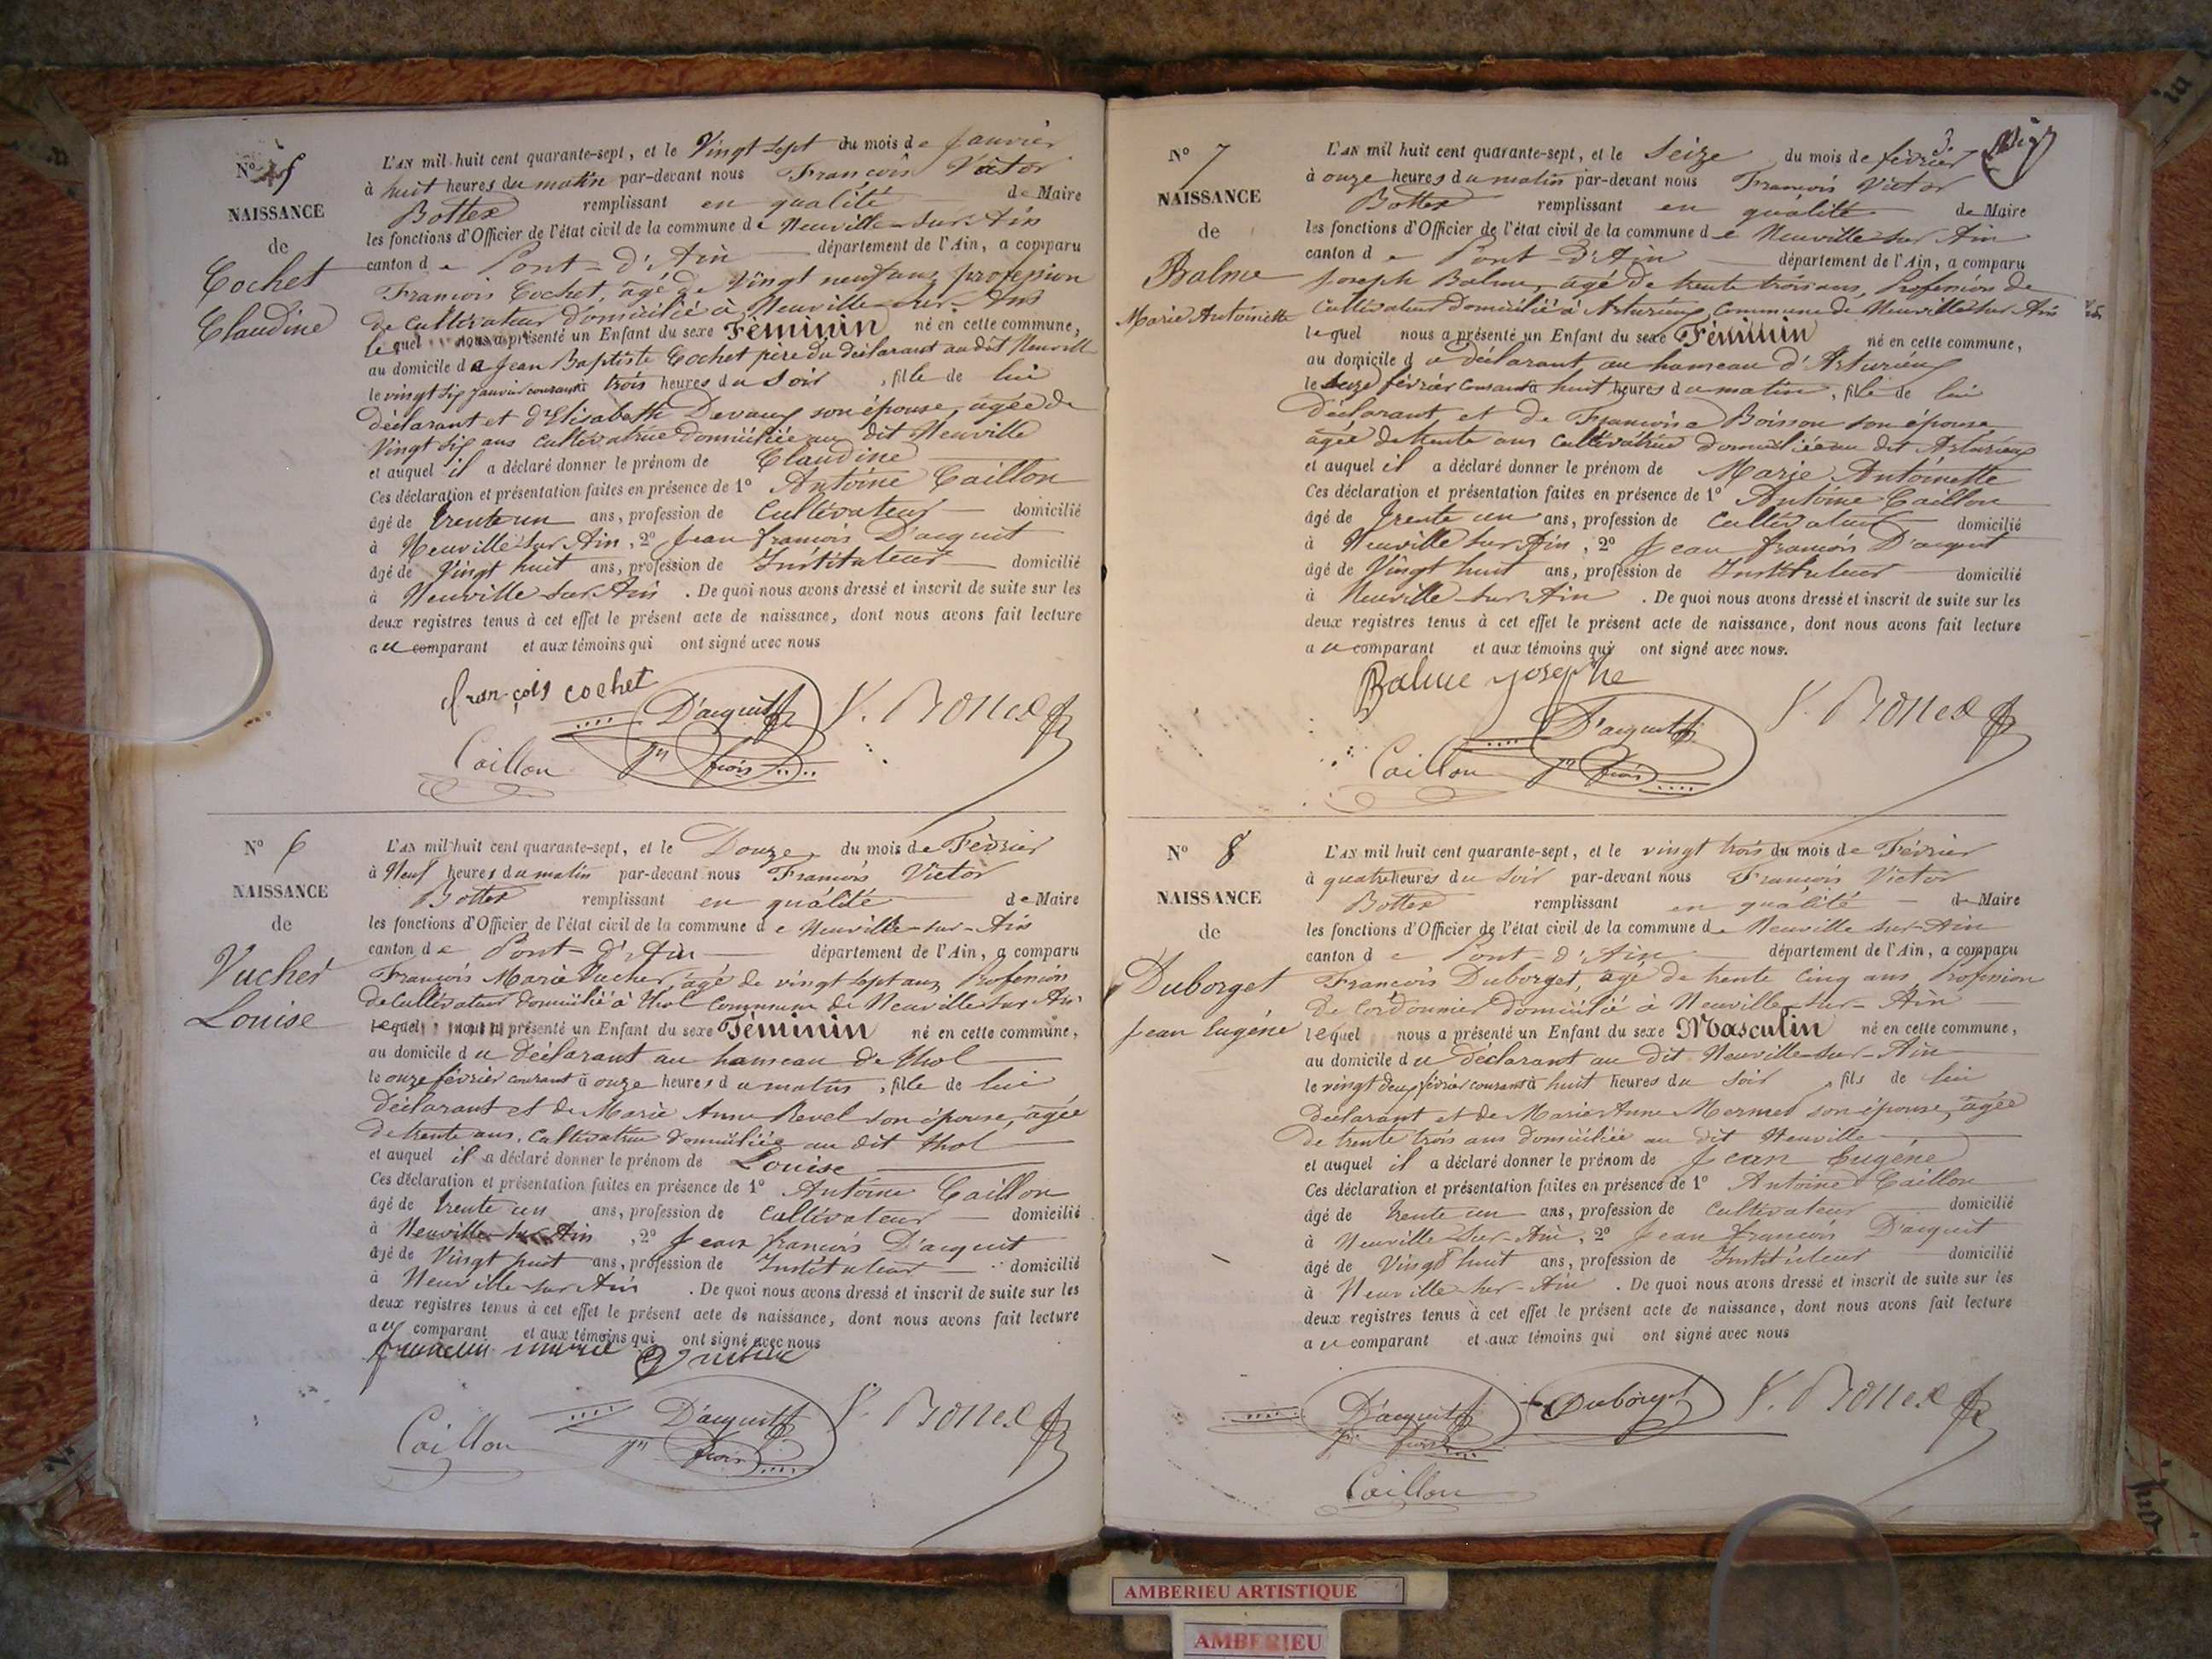 N° 5
NAISSANCE
de
Cochet
Claudine
L'AN mil huit cent quarante-sept, et le Vingt sept du mois de Janvier
à huit heures du matin par-devant nous François Victor
Bottex remplissant en qualité de Maire
les fonctions d'Officier de l'état civil de la commune de Neuville-sur-Ain
canton de Pont-d'Ain département de l'Ain, a comparu
François Cochet, âgé de Vingt neuf ans, profession
de Cultivateur domicilié à Neuville-sur-Ain
lequel nous a présenté un Enfant du sexe Féminin né en cette commune,
au domicile de Jean Baptiste Cochet père du déclarant au dit Neuville
le vingt six Janvier courant à trois heures du Soir, fille de lui
déclarant et d'Elisabeth Devaux son épouse, agée de
Vingt six ans cultivatrice domiciliée au dit Neuville
et auquel il a déclaré donner le prénom de Claudine
Ces déclaration et présentation faites en présence de 1° Antoine Caillon
âgé de trente un ans, profession de Cultivateur domicilié
à Neuville sur Ain, 2° Jean françois D'acquit
âgé de Vingt huit ans, profession de Instituteur domicilié
à Neuville-sur-Ain. De quoi nous avons dressé et inscrit de suite sur les
deux registres tenus à cet effet le présent acte de naissance, dont nous avons fait lecture
au comparant et aux témoins qui ont signé avec nous
françois cochet
D'acquit V. Bottex
Caillon Jn fcois
N° 6
NAISSANCE
de
Vucher
Louise
L'AN mil huit cent quarante-sept, et le Douze du mois de Février
à Neuf heures du matin par-devant nous François Victor
Bottex remplissant en qualité de Maire
les fonctions d'Officier de l'état civil de la commune de Neuville-sur-Ain
canton de Pont-d'Ain département de l'Ain, a comparu
François Marie Vucher, âgé de vingt sept ans, Profession
de Cultivateur domicilié à Thol commune de Neuville sur Ain
lequel nous a présenté un Enfant du sexe Féminin né en cette commune,
au domicile du déclarant au hameau de Thol
le onze février courant à onze heures du matin, fille de lui
déclarant et de Marie Anne Revel son épouse, agée
de trente ans, Cultivatrice domiciliée au dit Thol
et auquel il a déclaré donner le prénom de Louise
Ces déclaration et présentation faites en présence de 1° Antoine Caillon
âgé de trente un ans, profession de Cultivateur domicilié
à Neuville-sur-Ain, 2° Jean françois D'acquit
âgé de Vingt huit ans, profession de Instituteur domicilié
à Neuville-sur-Ain. De quoi nous avons dressé et inscrit de suite sur les
deux registres tenus à cet effet le présent acte de naissance, dont nous avons fait lecture
au comparant et aux témoins qui ont signé avec nous
D'acquit V. Bottex
Caillon Jn fcois
3.
N° 7
NAISSANCE
de
Balme
Marie Antoinette
L'AN mil huit cent quarante-sept, et le Seize du mois de février
à onze heures du matin par-devant nous François Victor
Bottex remplissant en qualité de Maire
les fonctions d'Officier de l'état civil de la commune de Neuville sur Ain
canton de Pont-d'Ain département de l'Ain, a comparu
Joseph Balme, agé de trente trois ans, Profession de
Cultivateur domicilié à Arturieux, Commune de Neuville sur Ain
lequel nous a présenté un Enfant du sexe Féminin né en cette commune,
au domicile du déclarant, au hameau d'Arturieux
le Seize février courant à huit heures du matin, fille de lui
déclarant et de Françoise Boisson son épouse
agée de trente ans cultivatrice domiciliée au dit Arturieux
et auquel il a déclaré donner le prénom de Marie Antoinette
Ces déclaration et présentation faites en présence de 1° Antoine Caillon
âgé de trente un ans, profession de Cultivateur domicilié
à Neuville sur Ain, 2° Jean françois D'acquit
âgé de Vingt huit ans, profession de Instituteur domicilié
à Neuville-sur-Ain. De quoi nous avons dressé et inscrit de suite sur les
deux registres tenus à cet effet le présent acte de naissance, dont nous avons fait lecture
au comparant et aux témoins qui ont signé avec nous.
Balme josephe
D'acquit V. Bottex
Caillon Jn fcois
N° 8
NAISSANCE
de
Duborget
Jean Eugéne
L'AN mil huit cent quarante-sept, et le vingt trois du mois de Février
à quatre heures du Soir par-devant nous François Victor
Bottex remplissant en qualité de Maire
les fonctions d'Officier de l'état civil de la commune de Neuville sur-Ain
canton de Pont-d'Ain département de l'Ain, a comparu
François Duborget, âgé de trente cinq ans, Profession
de Cordonnier domicilié à Neuville-sur-Ain
lequel nous a présenté un Enfant du sexe Masculin né en cette commune,
au domicile du déclarant au dit Neuville-sur-Ain
le vingt deux février courant à huit heures du Soir, fils de lui
Déclarant et de Marie Anne Mermet son épouse, agée
de trente trois ans domiciliée au dit Neuville
et auquel il a déclaré donner le prénom de Jean Eugéne
Ces déclaration et présentation faites en présence de 1° Antoine Caillon
âgé de trente un ans, profession de Cultivateur domicilié
à Neuville-sur-Ain, 2° Jean françois D'acquit
âgé de Vingt huit ans, profession de Instituteur domicilié
à Neuville sur-Ain. De quoi nous avons dressé et inscrit de suite sur les
deux registres tenus à cet effet le présent acte de naissance, dont nous avons fait lecture
au comparant et aux témoins qui ont signé avec nous
D'acquit Duborget V. Bottex
Jn fcois
Caillon
AMBERIEU ARTISTIQUE
AMBERIEU